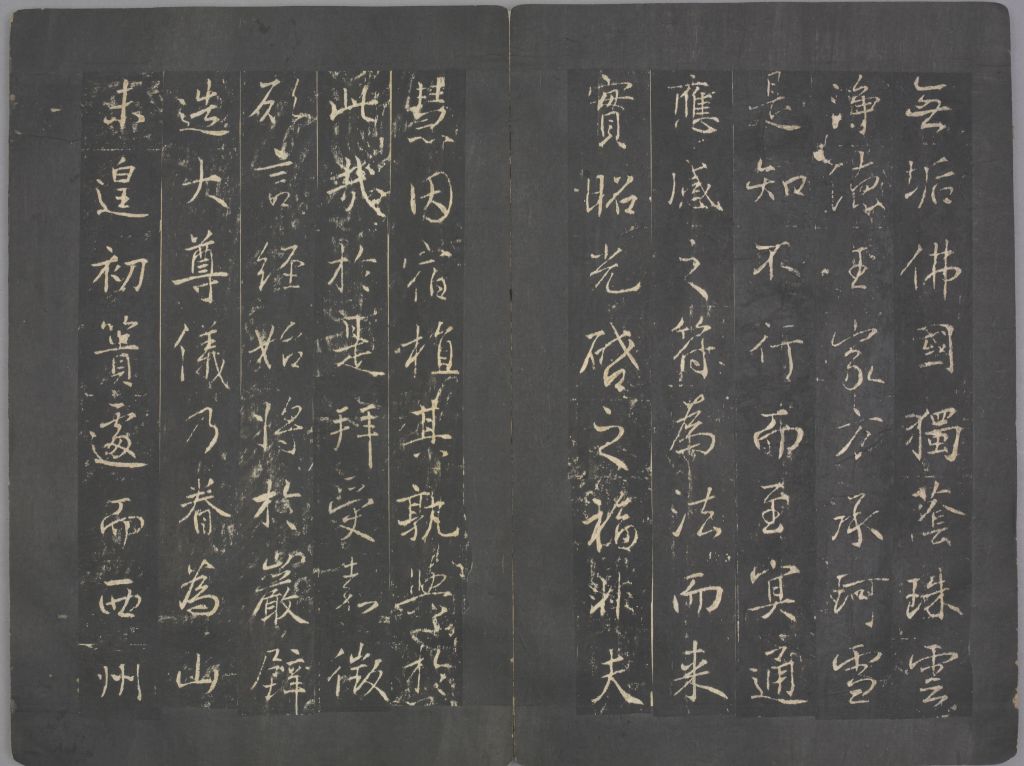 無垢佛國獨蔭珠雲
淨德王家方承珂雪
是知不行而至冥通
應感之符為法而来
實昭光啓之福非夫
慧因宿植其孰與於
此哉於是拜受嘉徵
願言経始將於巖壁
造大尊儀乃眷為山
未遑初簣遽而西州